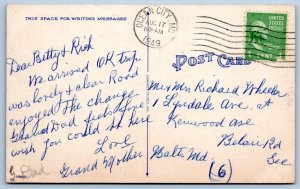 THIS SPACE FOR WRITING MESSAGES
OCEAN CITY, MD.
AUG 17
AM
1949
POST CARD
Dear Betty & Rick
We arrived OK trip
was lovely & clear Road
enjoyed The change
Dad feels fine
wish you could be here
Love
Grand Mother
Mr & Mrs Richard Wheeler
1 Lyndale Ave. at
Kenwood Ave
Belair Rd
Balto Md. Sec
6